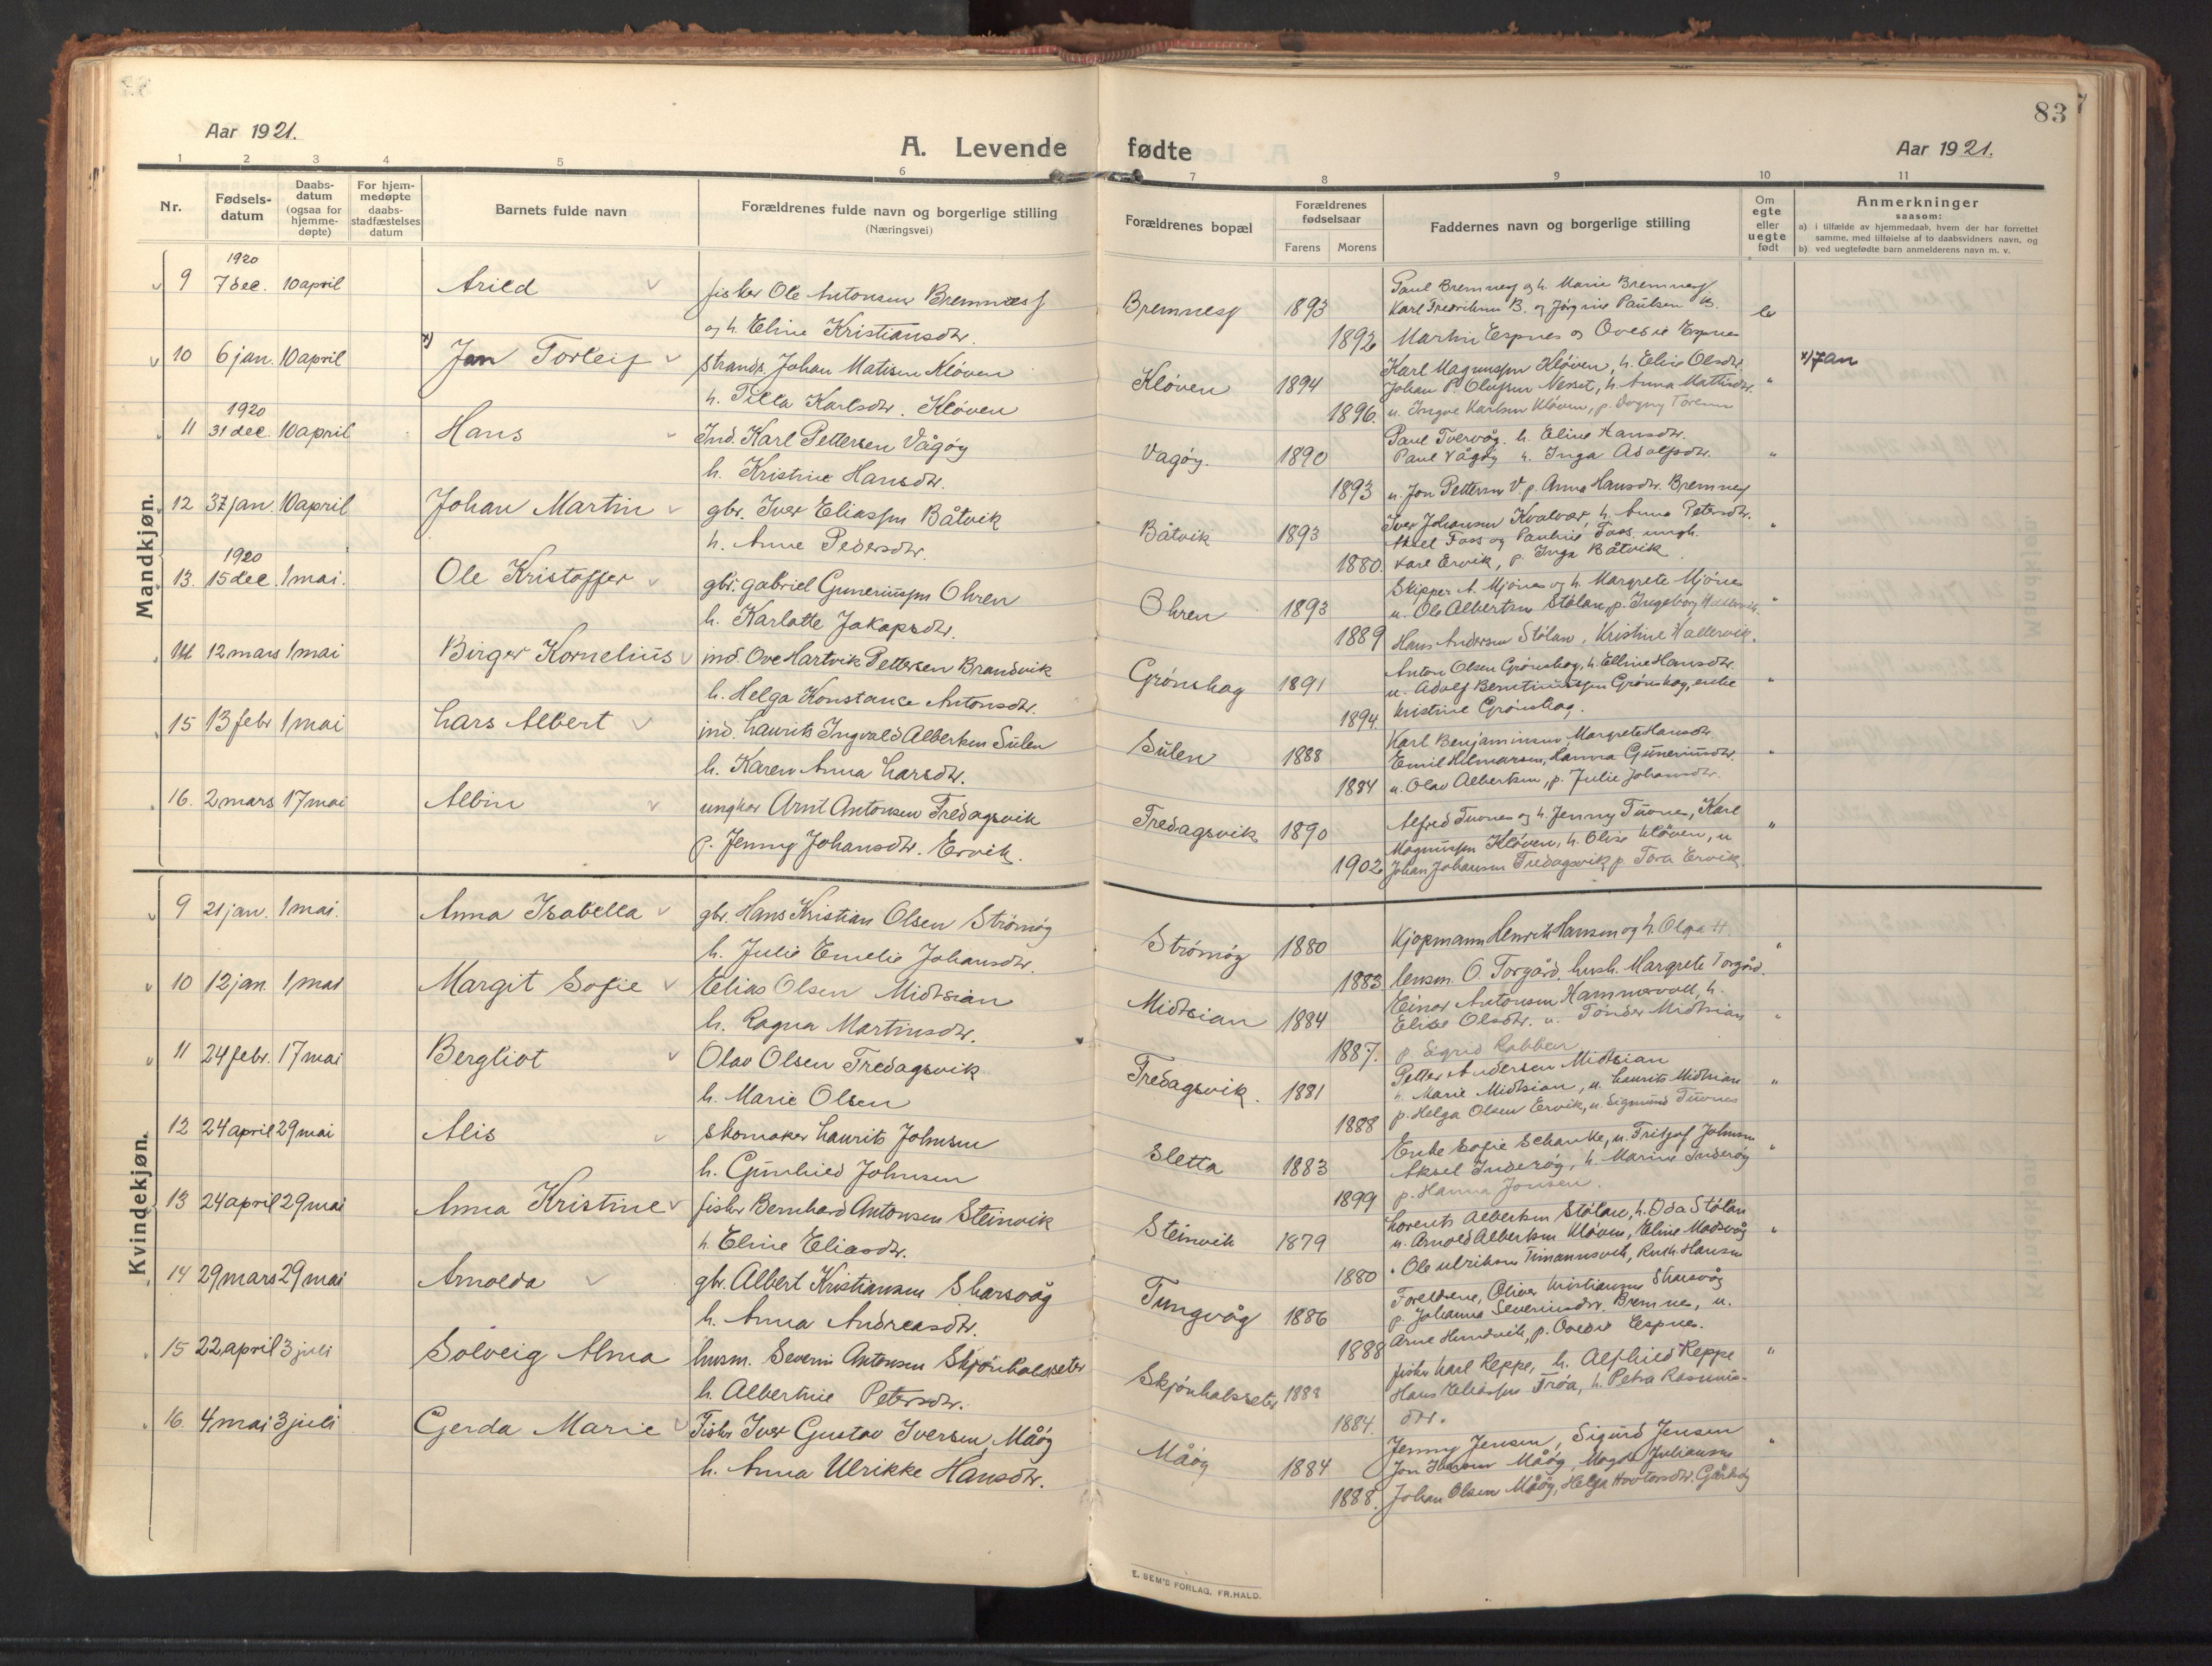 83
Aar 1921.
A. Levende fødte
Aar 1921.
1 2 3 4 5 6 7 8 9 10 11
Nr.
Fødsels-
datum
Daabs-
datum
(ogsaa for
hjemme-
døpte)
For hjem-
medøpte
daabs-
stadfæstelses
datum
Barnets fulde navn
Forældrenes fulde navn og borgerlige stilling
(Næringsvei)
Forældrenes bopæl
Forældrenes
fødselsaar
Farens Morens
Faddernes navn og borgerlige stilling
Om
egte
eller
uegte
født
Anmerkninger
saasom:
a) i tilfælde av hjemmedaab, hvem der har forrettet
samme, med tilføielse af to daabsvidners navn, og
b) ved uegtefødte barn anmelderens navn m. v.
Mandkjøn.
1920
9 7 dec. 10 april Arild fisker Ole Antonsen Bremnes
og h. Eline Kristiansdtr.
Bremnes 1893 1892
Paul Bremnes og h. Marie Bremnes
Karl Fredriksen B. og Jørgine Paulsen B.
Martin Espnes og Ovedie Espnes
10 6 jan. 10 april x) Jan Torleif strands. Johan Matisen Kløven
h. Tilla Karlsdtr. Kløven
Kløven 1894 1896.
Karl Magnussen Kløven, h. Elise Olsdtr.
Johan P. Olufsen Nesset, h. Anna Mattisdtr. "
u. Ingve Karlsen Kløven, p. Dagny
x) Jan
1920
11 31 dec. 10 april Hans Ind. Karl Pettersen Vågøy
h. Kristine Hansdtr.
Vagøy. 1890 1893
Paul Tvervåg. h. Eline Hansdtr.
Paul Vågøy h. Inga Adolfsdtr. "
u. Jon Pettersen V. p. Anna Hansdtr. Bremnes
12 jan. 10 april Johan Martin gbr. Iver Eliassen Båtvik
h. Anne Pedersdtr.
Båtvik 1893 1880
Iver Johansen Kvalvær, h. Anna Petersdtr. "
Aksel Foss og Pauline Foss ungk.
Karl Ervik, p. Inga Båtvik
1920
13. 15 dec. 1 mai. Ole Kristoffer gbr. Gabriel Guneriussen Ohren
h. Karlotte Jakopsdtr.
Ohren 1893 1889
Skipper A. Mjønes og h. Margrete Mjønes
u. Ole Albertsen Stølan, p. Ingeborg Hallervik. "
Hans Andersen Stølan, Kristine Hallervik.
14 12 mars 1 mai Birger Kornelius ind. Ove Hartvik Pettersen Brandvik
h. Helga Konstanse Antonsdtr.
Grønskag 1891 1894.
Anton Olsen Grønskag, h. Elline Hansdtr.
u. Adolf Berntinussen Grønskag, enke "
Kristine Grønskag.
15 13 febr 1 mai Lars Albert ind. Laurits Ingvald Albertsen Sülen
h. Karen Anna Larsdtr.
Sülen 1888 1884
Karl Benjaminsen, Margrete Hansdtr.
Emil Hilmarsen, Hanna Guneriusdtr. "
u. Olav Albertsen, p. Julie Johansdtr.
16. 2 mars 17 mai Albin ungkar Arnt Antonsen Fredagsvik
p. Jenny Johansdtr. Ervik.
Fredagsvik 1890 1902
Alfred Tuvnes og h. Jenny Tuvnes, Karl
Magnussen Kløven, h. Olise Kløven, u "
Johan Johansen Fredagsvik p. Tora Ervik.
Kvindekjøn.
9 21 jan. 1 mai. Anna Isabella gbr. Hans Kristian Olsen Strømøy
h. Julie Emelie Johansdtr.
Strømøy 1880 1883
Kjøpmann Henrik Hansen og h. Olga H. "
lensm. O. Torgård. hush. Margrete Torgård.
10 12 jan 1 mai Margit Sofie Elias Olsen Midtsian
h. Ragna Martinsdtr.
Midtsian 1884 1887.
Einar Antonsen Hammervoll, h.
Elise Olsdtr. u. Tønder Midtsian "
p. Sigrid Rabben
11 24 febr. 17 mai Bergliot Olav Olsen Fredagsvik
h. Marie Olsen
Fredagsvik. 1881 1888
Petter Andersen Midtsian
h. Marie Midtsian, u. Laurits Midtsian "
p. Helga Olsen Ervik, u. Sigmund Tuvnes
12 24 april 29 mai Alis skomaker Laurits Johnsen
h. Gunhild Johnsen
Sletta 1883 1899
Enke Sofie Schanke, u. Fritjof Johnsen "
Aksel Inderøy, h. Marine Inderøy
p. Hanna Jonsen.
13 24 april 29 mai Anna Kristine fisker Bernhard Antonsen Steinvik
h. Eline Eliasdtr.
Steinvik 1879 1880
Lorents Albertsen Stølan, h. Oda Stølan
u. Arnold Albertsen Kløven, Eline Madsvåg "
Ole Ulriksen Timannsvik, Ruth Hansen
14 29 mars 29 mai Arnolda gbr. Albert Kristiansen Skarsvåg
h. Anna Andreasdtr.
Tungvåg 1886 1888
Foreldrene, Oliver Kristiansen Skarsvåg
p. Johanna Severinsdtr. Bremnes, u.
Arne Hundvik, p. Ovedie Espnes.
15 22 april 3 juli Solveig Alma husm. Severin Antonsen Skjønhalsseter
h. Albertine Petersdtr.
Skjønhalsseter 1888 1884.
fisker Karl Reppe, h. Alfhild Reppe "
Hans Eliassen Frøa, h. Petra Rasmus-
dtr.
16. 4 mai 3 juli Gerda Marie Fisker Iver Gustav Iversen, Måøy
h. Anna Ulrikke Hansdtr.
Måøy 1884 1888.
Jenny Jensen, Sigurd Jensen "
Jon Måøy, Magda Juliansen
Johan Olsen Måøy, Helga
E. SEM'S FORLAG, FR.HALD.